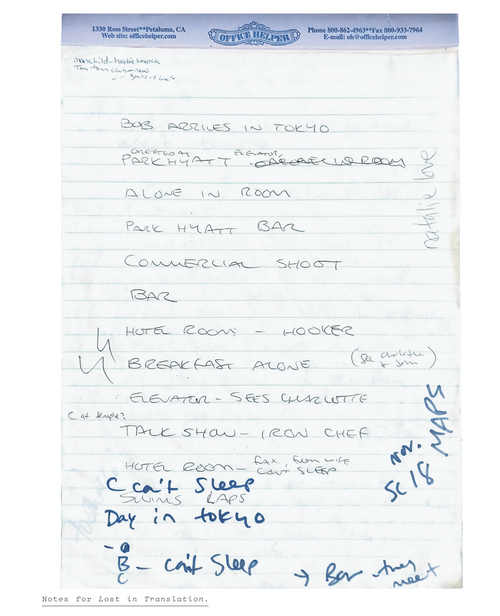 1330 Ross Street**Petaluma, CA
Web site: officehelper.com
OFFICE HELPER
Phone 800-862-4963**Fax 800-933-7964
E-mail: oh@officehelper.com
BOB ARRIVES IN TOKYO
GREETED AT ELEVATOR,
PARK HYATT
ALONE IN ROOM
PARK HYATT BAR
COMMERCIAL SHOOT
BAR
HOTEL ROOM - HOOKER
BREAKFAST ALONE (See charlotte
+ John)
ELEVATOR - SEES CHARLOTTE
C at temple?
TALK SHOW - IRON CHEF
HOTEL ROOM - fax from wife
CAN'T SLEEP
C can't Sleep
SWIMS LAPS
Day in tokyo
- B
C - can't Sleep
→ Bar - they
meet
natalie
NOV.
SC 18 MAPS
Notes for Lost in Translation.